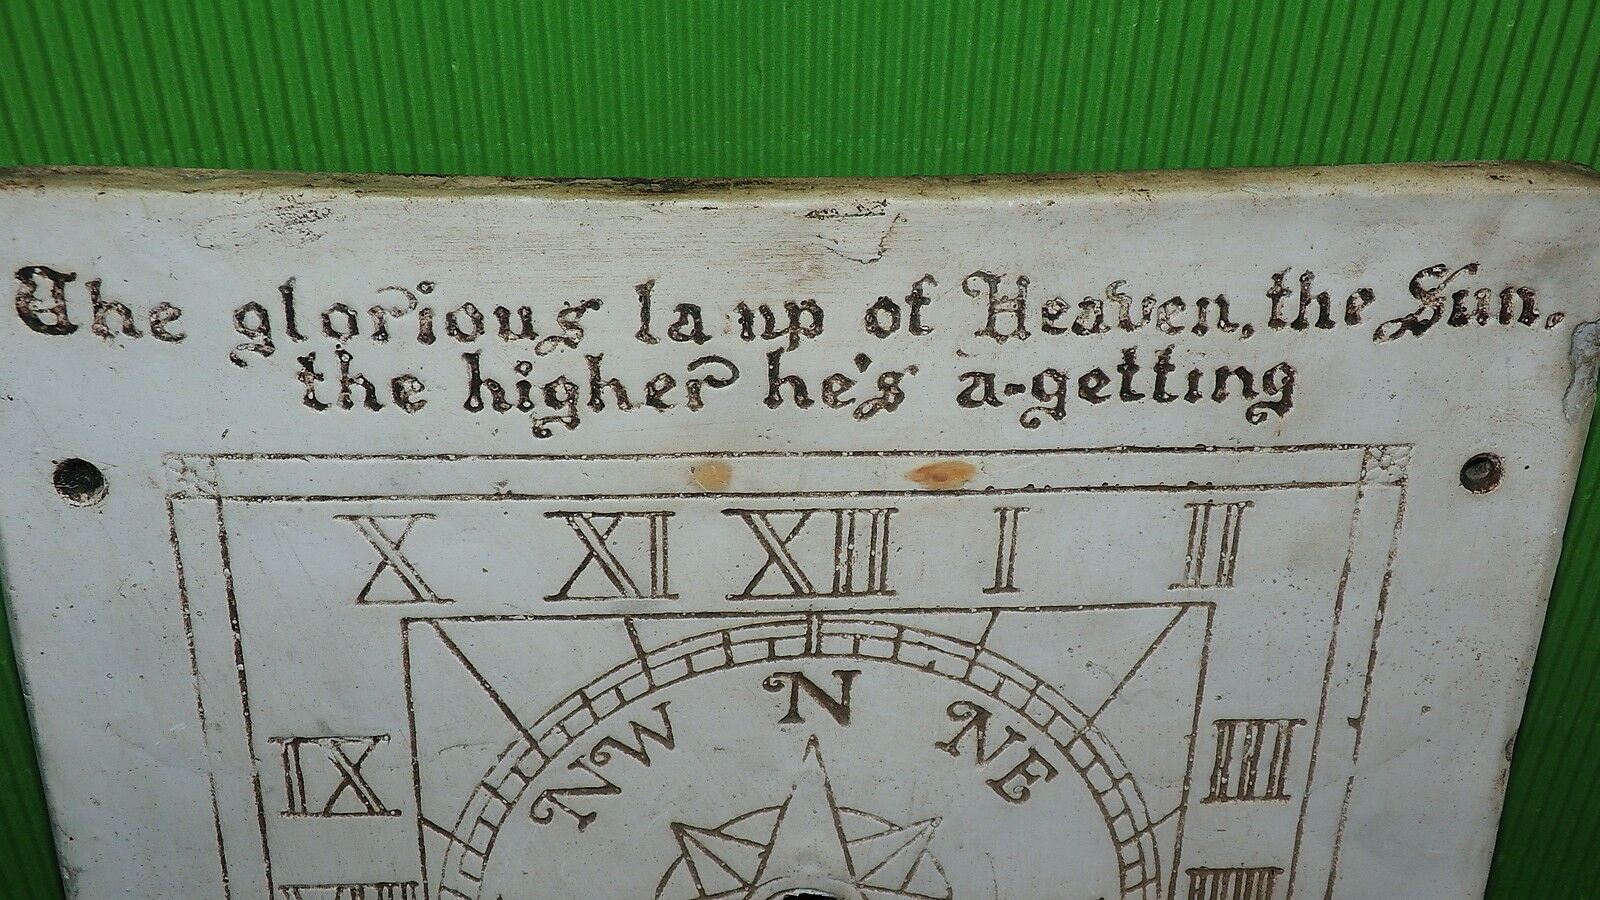 The glorious la up of Heaven, the Sun,
the higher he's a-getting
X XI XII I II
N
NW NE
IX III
VIII IIII